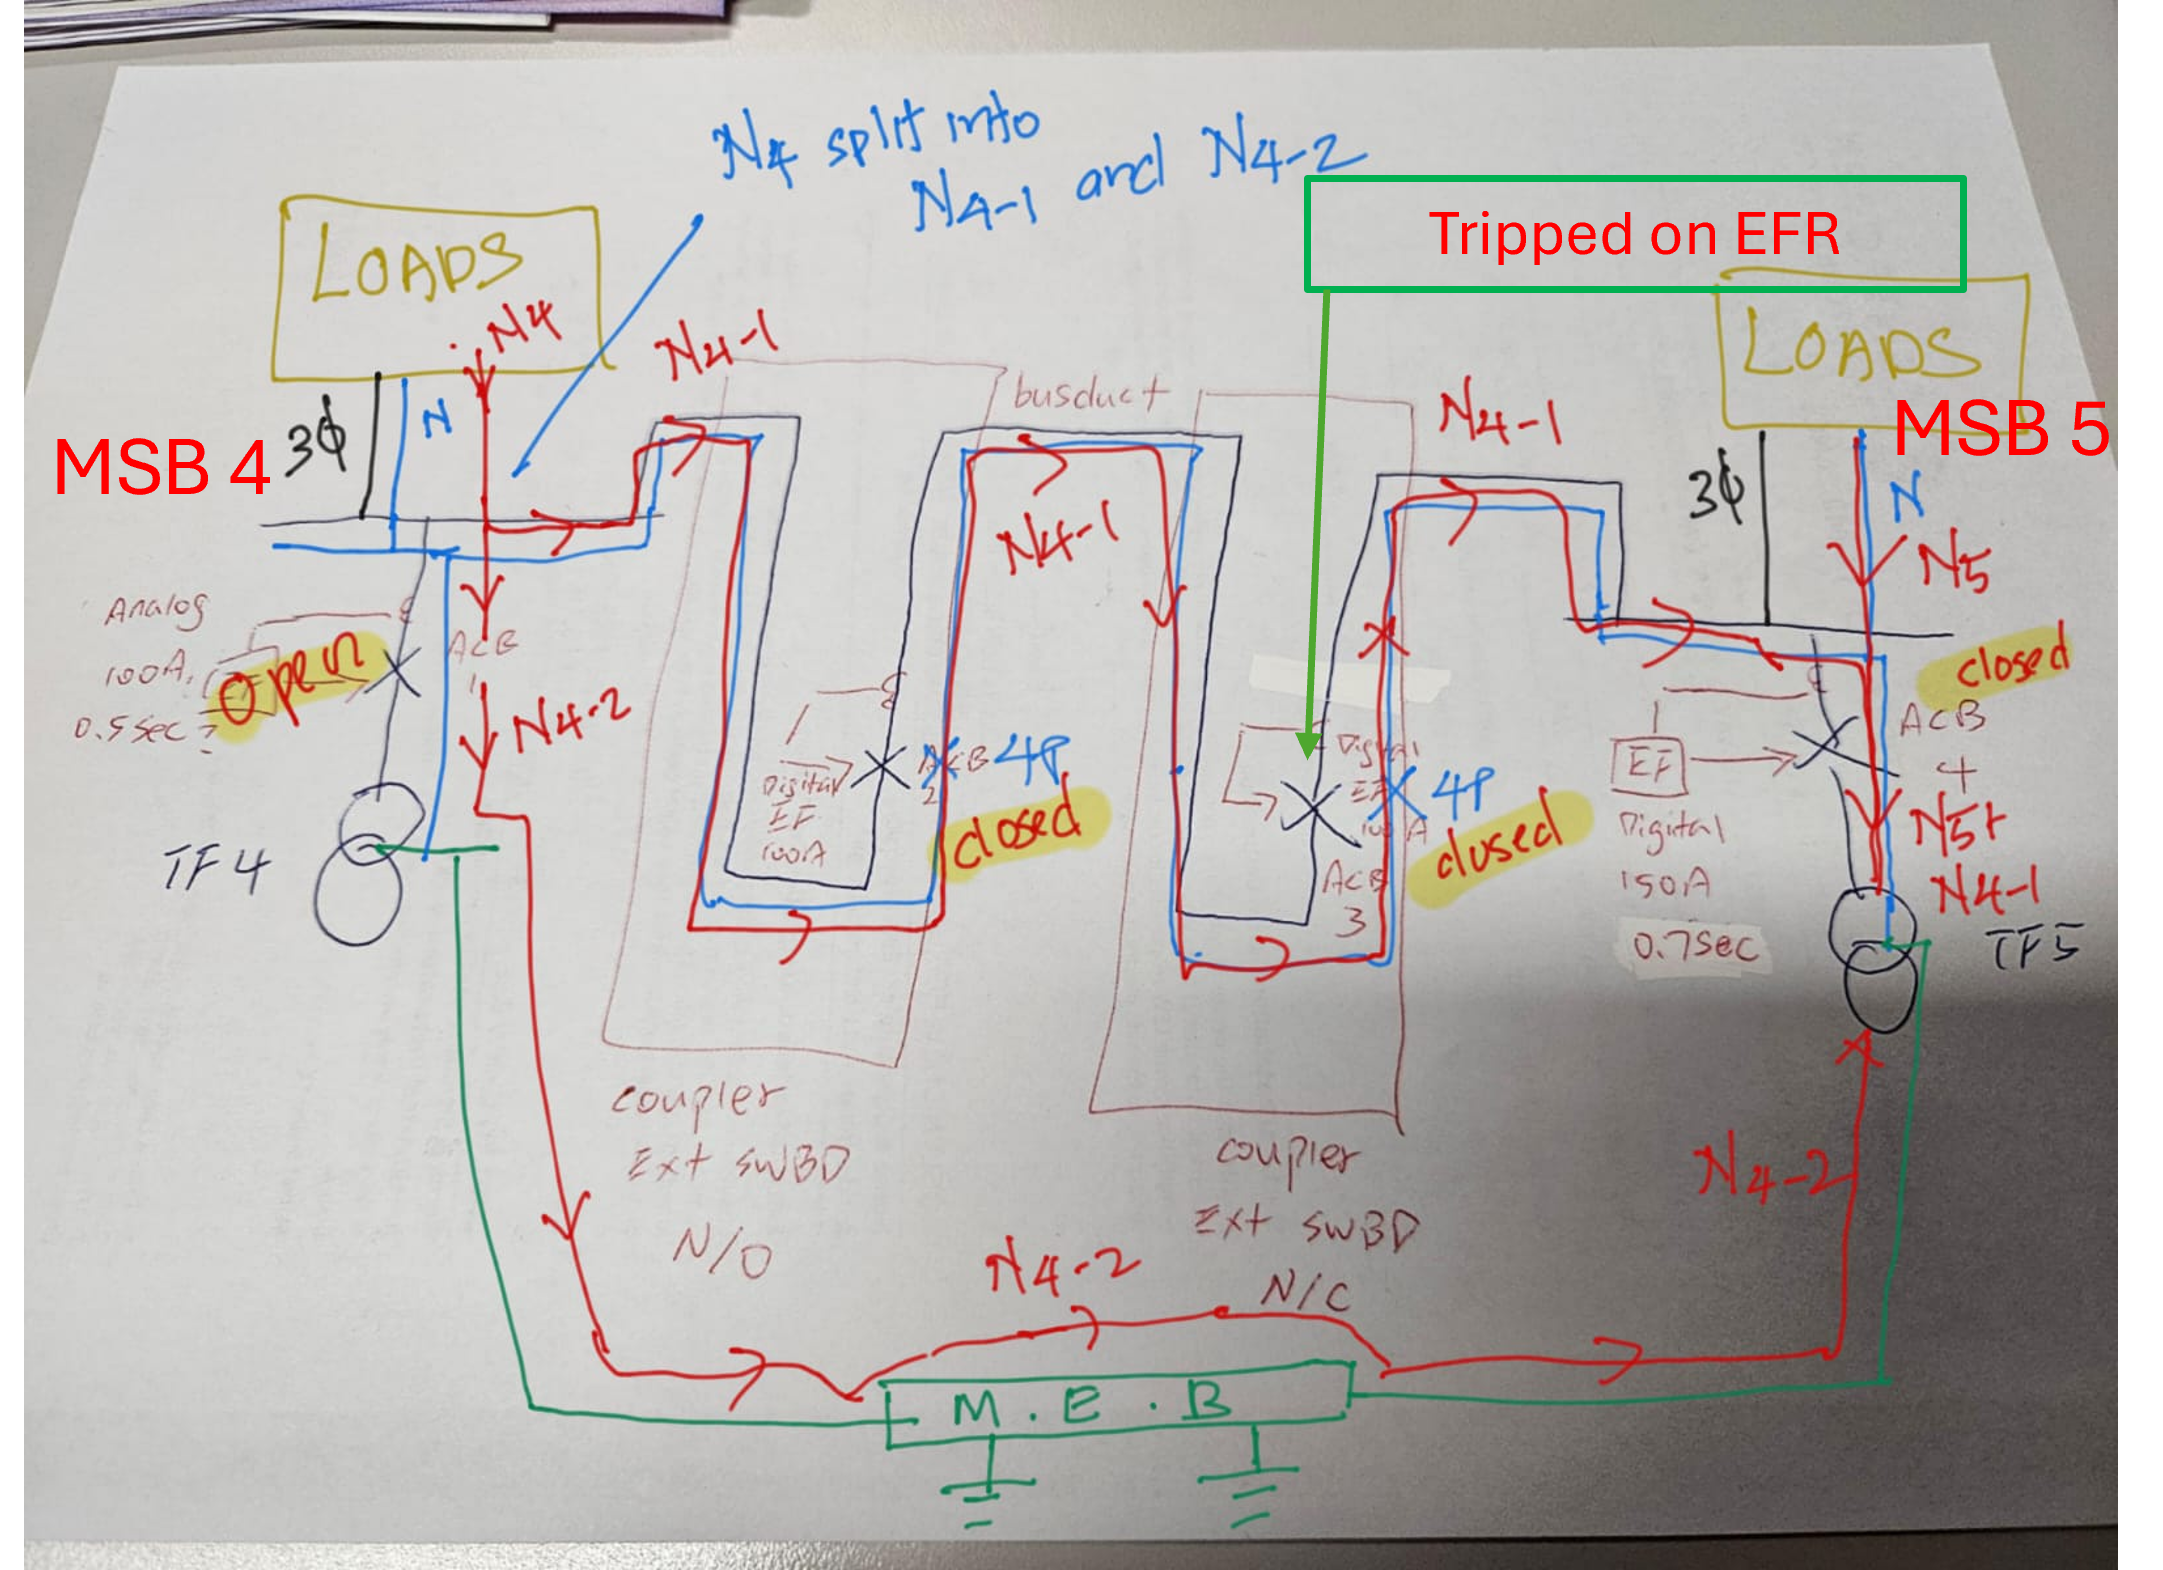 N4 split into
N4-1 and N4-2
Tripped on EFR
LOADS
N4
N4-1
busduct
N4-1
LOADS
MSB 4
3ϕ
N
MSB 5
3ϕ
N
N4-1
N5
Analog
100A,
0.5sec ?
Open
ACB
1
N4-2
closed
ACB
4
EF
Digital
150A
0.7sec
N5+
N4-1
TF5
Digital
EF
100A
ACB
2
4P
closed
Digital
EF
100A
4P
closed
ACB
3
TF4
coupler
Ext SWBD
N/O
coupler
Ext SWBD
N/C
N4-2
N4-2
M.E.B